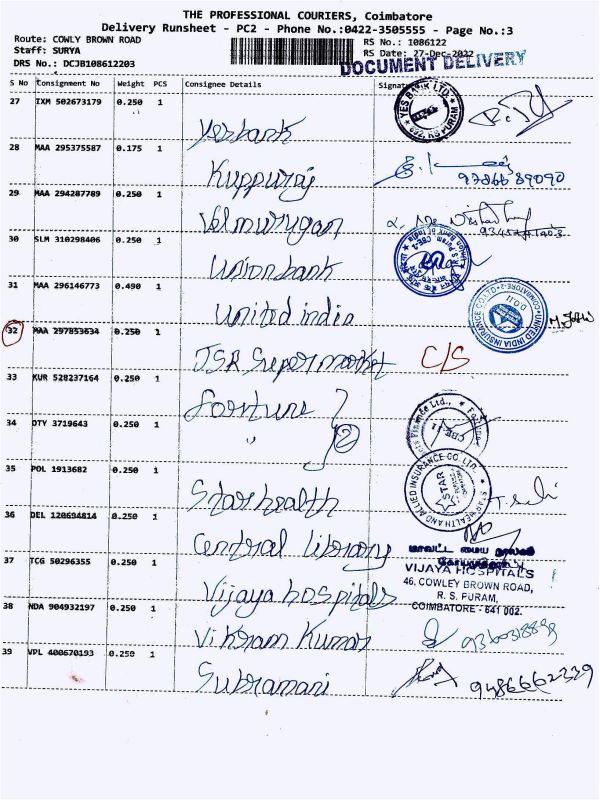 THE PROFESSIONAL COURIERS, Coimbatore
Delivery Runsheet - PC2 - Phone No.:0422-3505555 - Page No.:3
Route: COWLY BROWN ROAD
Staff: SURYA
DRS No.: DCJB108612203
RS No.: 1086122
RS Date: 27-Dec-2022
DOCUMENT DELIVERY
S No Consignment No Weight PCS Consignee Details Signature
27 IXM 502673179 0.250 1
Yesbank
YES BANK LTD. 632, RS PURAM
28 MAA 295375587 0.175 1
Kuppuraj
29 MAA 294287789 0.250 1
Velmurugan
30 SLM 310298406 0.250 1
Union bank
31 MAA 296146773 0.490 1
United india
UNITED INDIA INSURANCE CO LTD COIMBATORE-2
32 MAA 297853634 0.250 1
JSR Supermarket C/S
33 KUR 528237164 0.250 1
Fortune
34 OTY 3719643 0.250 1
" 2
35 POL 1913682 0.250 1
Star health
STAR HEALTH AND ALLIED INSURANCE CO. LTD.
36 DEL 120694814 0.250 1
Central library
மாவட்ட மைய நூலகம்
37 TCG 50296355 0.250 1
Vijaya hospitals
VIJAYA HOSPITALS
46, COWLEY BROWN ROAD,
R. S. PURAM,
COIMBATORE - 641 002.
38 NDA 904932197 0.250 1
Vikram Kumar
39 VPL 400670193 0.250 1
Subramani
9486662339